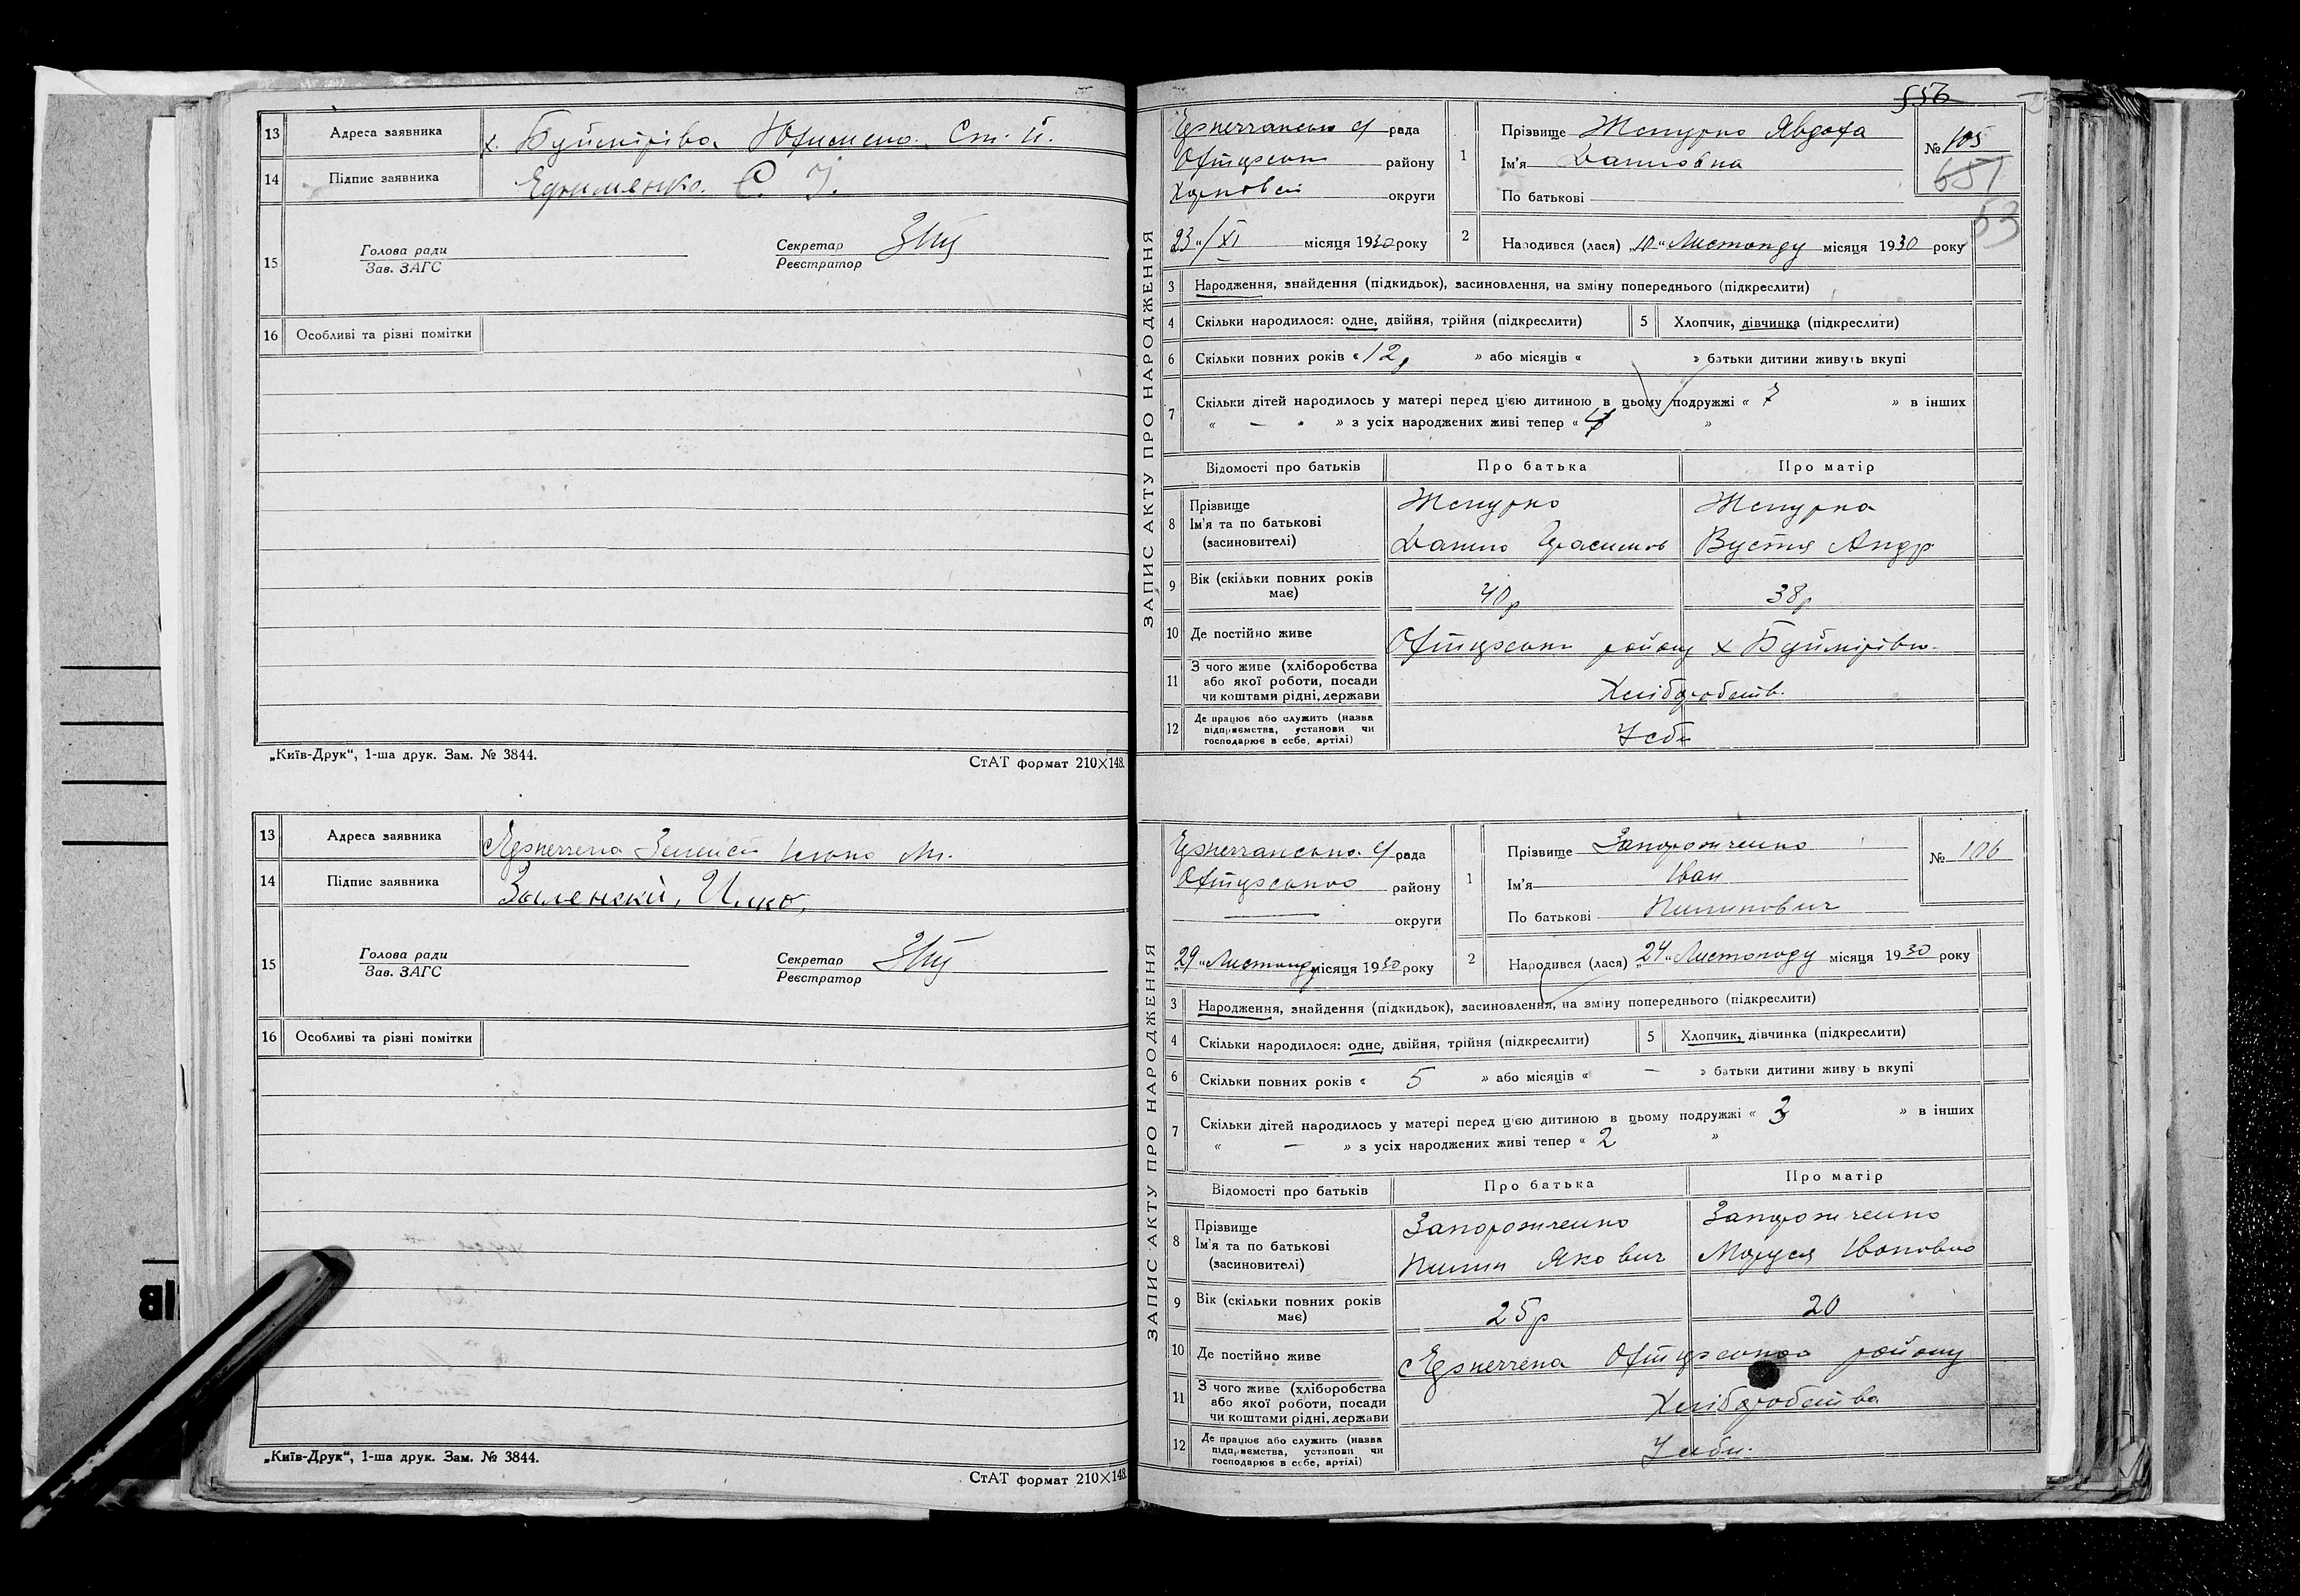 13 Адреса заявника х. Буймірівка
14 Підпис заявника Єфименко. С. І.
15 Голова ради Зав. ЗАГС Секретар Реєстратор
16 Особливі та різні помітки
„Київ-Друк“, 1-ша друк. Зам. № 3844.
СтАТ формат 210×148.
13 Адреса заявника
14 Підпис заявника
15 Голова ради Зав. ЗАГС Секретар Реєстратор
16 Особливі та різні помітки
„Київ-Друк“, 1-ша друк. Зам. № 3844.
СтАТ формат 210×148.
556
ЗАПИС АКТУ ПРО НАРОДЖЕННЯ
рада
району
округи
23 „/XI місяця 1930 року
1 Прізвище Явдоха
Ім'я Даниловна
По батькові
№ 105
651
53
2 Народився (лася) „10“ Листопаду місяця 1930 року
3 Народження, знайдення (підкидьок), засиновлення, на зміну попереднього (підкреслити)
4 Скільки народилося: одне, двійня, трійня (підкреслити)
5 Хлопчик, дівчинка (підкреслити)
6 Скільки повних років « 12 » або місяців « » батьки дитини живуть вкупі
7 Скільки дітей народилось у матері перед цією дитиною в цьому подружжі « 7 » в інших
« — » з усіх народжених живі тепер « »
Відомості про батьків Про батька Про матір
8 Прізвище
Ім'я та по батькові
(засиновителі)
Данило Герасимов Вустя Андр
9 Вік (скільки повних років має) 40р 38р
10 Де постійно живе району х Буймірівка
11 З чого живе (хліборобства або якої роботи, посади чи коштами рідні, держави Хліборобств.
12 Де працює або служить (назва підприємства, установи чи господарює в себе, артілі) У себе
ЗАПИС АКТУ ПРО НАРОДЖЕННЯ
рада
району
округи
„29“ Листопаду місяця 1930 року
1 Прізвище Запорожченко
Ім'я Іван
По батькові Пилипович
№ 106
2 Народився (лася) „24“ Листопаду місяця 1930 року
3 Народження, знайдення (підкидьок), засиновлення, на зміну попереднього (підкреслити)
4 Скільки народилося: одне, двійня, трійня (підкреслити)
5 Хлопчик, дівчинка (підкреслити)
6 Скільки повних років « 5 » або місяців « — » батьки дитини живуть вкупі
7 Скільки дітей народилось у матері перед цією дитиною в цьому подружжі « » в інших
« — » з усіх народжених живі тепер « 2 »
Відомості про батьків Про батька Про матір
8 Прізвище
Ім'я та по батькові
(засиновителі)
Запорожченко Запорожченко
Пилип Якович Маруся Івановна
9 Вік (скільки повних років має) 25р 20
10 Де постійно живе району
11 З чого живе (хліборобства або якої роботи, посади чи коштами рідні, держави Хліборобства
12 Де працює або служить (назва підприємства, установи чи господарює в себе, артілі)